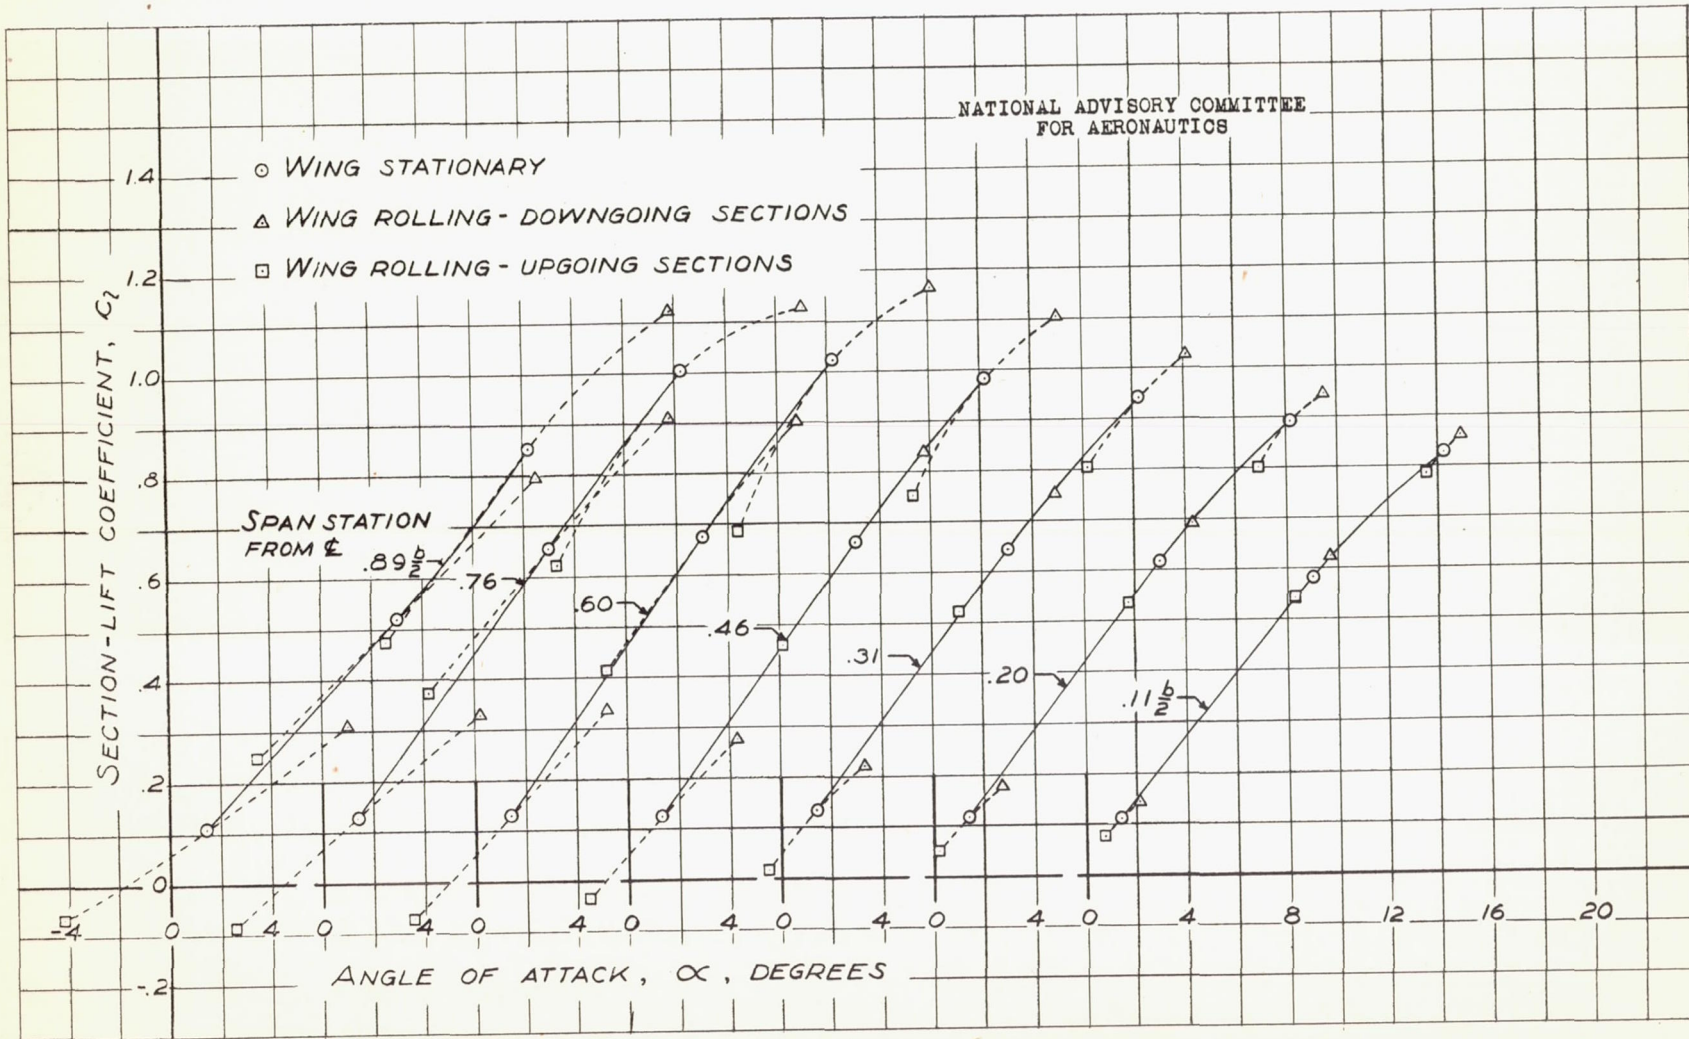 NATIONAL ADVISORY COMMITTEE
FOR AERONAUTICS
⊙ WING STATIONARY
△ WING ROLLING - DOWNGOING SECTIONS
□ WING ROLLING - UPGOING SECTIONS
SECTION-LIFT COEFFICIENT, Cl
1.4
1.2
1.0
.8
.6
.4
.2
0
-.2
SPAN STATION
FROM ℄
.89 b/2
.76
.60
.46
.31
.20
.11 b/2
-4 0 4 0 4 0 4 0 4 0 4 0 4 0 4 8 12 16 20
ANGLE OF ATTACK, α, DEGREES